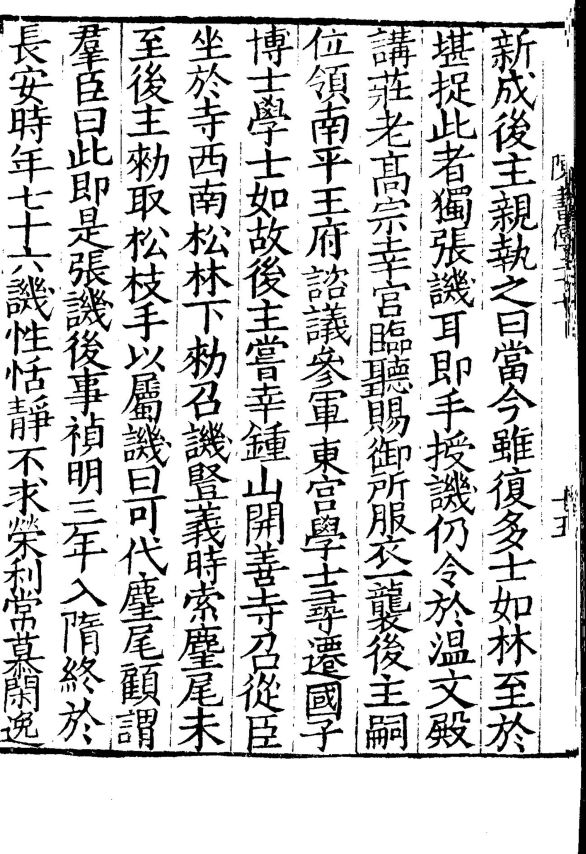 新成後主親執之曰當今雖復多士如林至於
堪捉此者獨張譏耳即手授譏仍令於温文殿
講莊老髙宗幸宫臨聽賜御所服衣一襲後主嗣
位領南平王府諮議參軍東宫學士尋遷國子
博士學士如故後主嘗幸鍾山開善寺召從臣
坐於寺西南松林下勑召譏豎義時索麈尾未
至後主勑取松枝手以屬譏曰可代麈尾顧謂
羣臣曰此即是張譏後事禎明三年入隋終於
長安時年七十六譏性恬靜不求榮利常慕閑逸